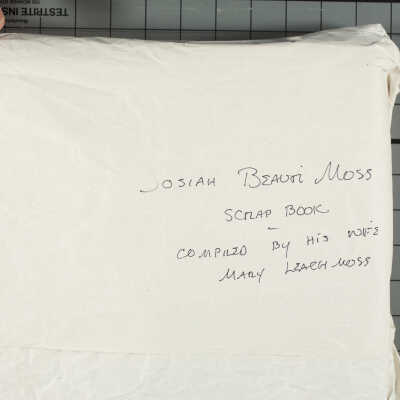 TESTRITE INS
JOSIAH BEAUTI MOSS
SCRAP BOOK
-
COMPILED BY HIS WIFE
MARY LEACH MOSS